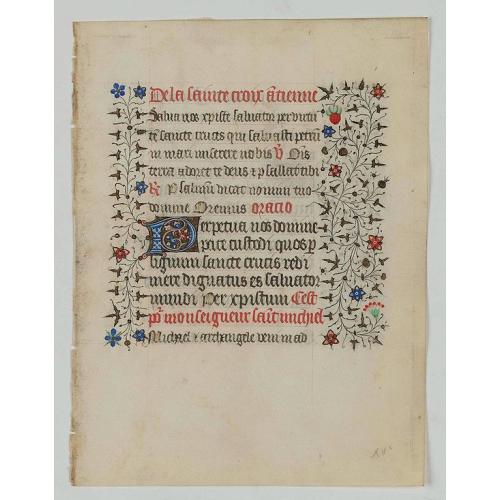 De la sainte croix ātienne
Salva nos xpiste salvator per virtu
tē sancte crucis qui salvasti petrū
in mari miserere nobis V Oīs
terra adoret te deus & psallat tibi
R Psalmū dicat nomini tuo
domine Oremus oracio
Perpetua nos domine
pace custodi quos p
lignum sancte crucis redi
mere dignatus es salvator
mundi Per xpistum Cest
pō monseigneur saīt michiel
Michael archangele veni in ad